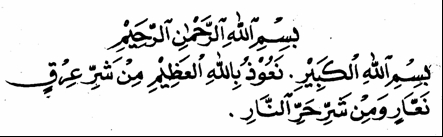 بِسْمِ اللهِ الرَّحْمٰنِ الرَّحِيْمِ
بِسْمِ اللهِ الْكَبِيْرِ. نَعُوْذُ بِاللهِ الْعَظِيْمِ مِنْ شَرِّ عِرْقٍ
نَعَّارٍ وَمِنْ شَرِّ حَرِّ النَّارِ.